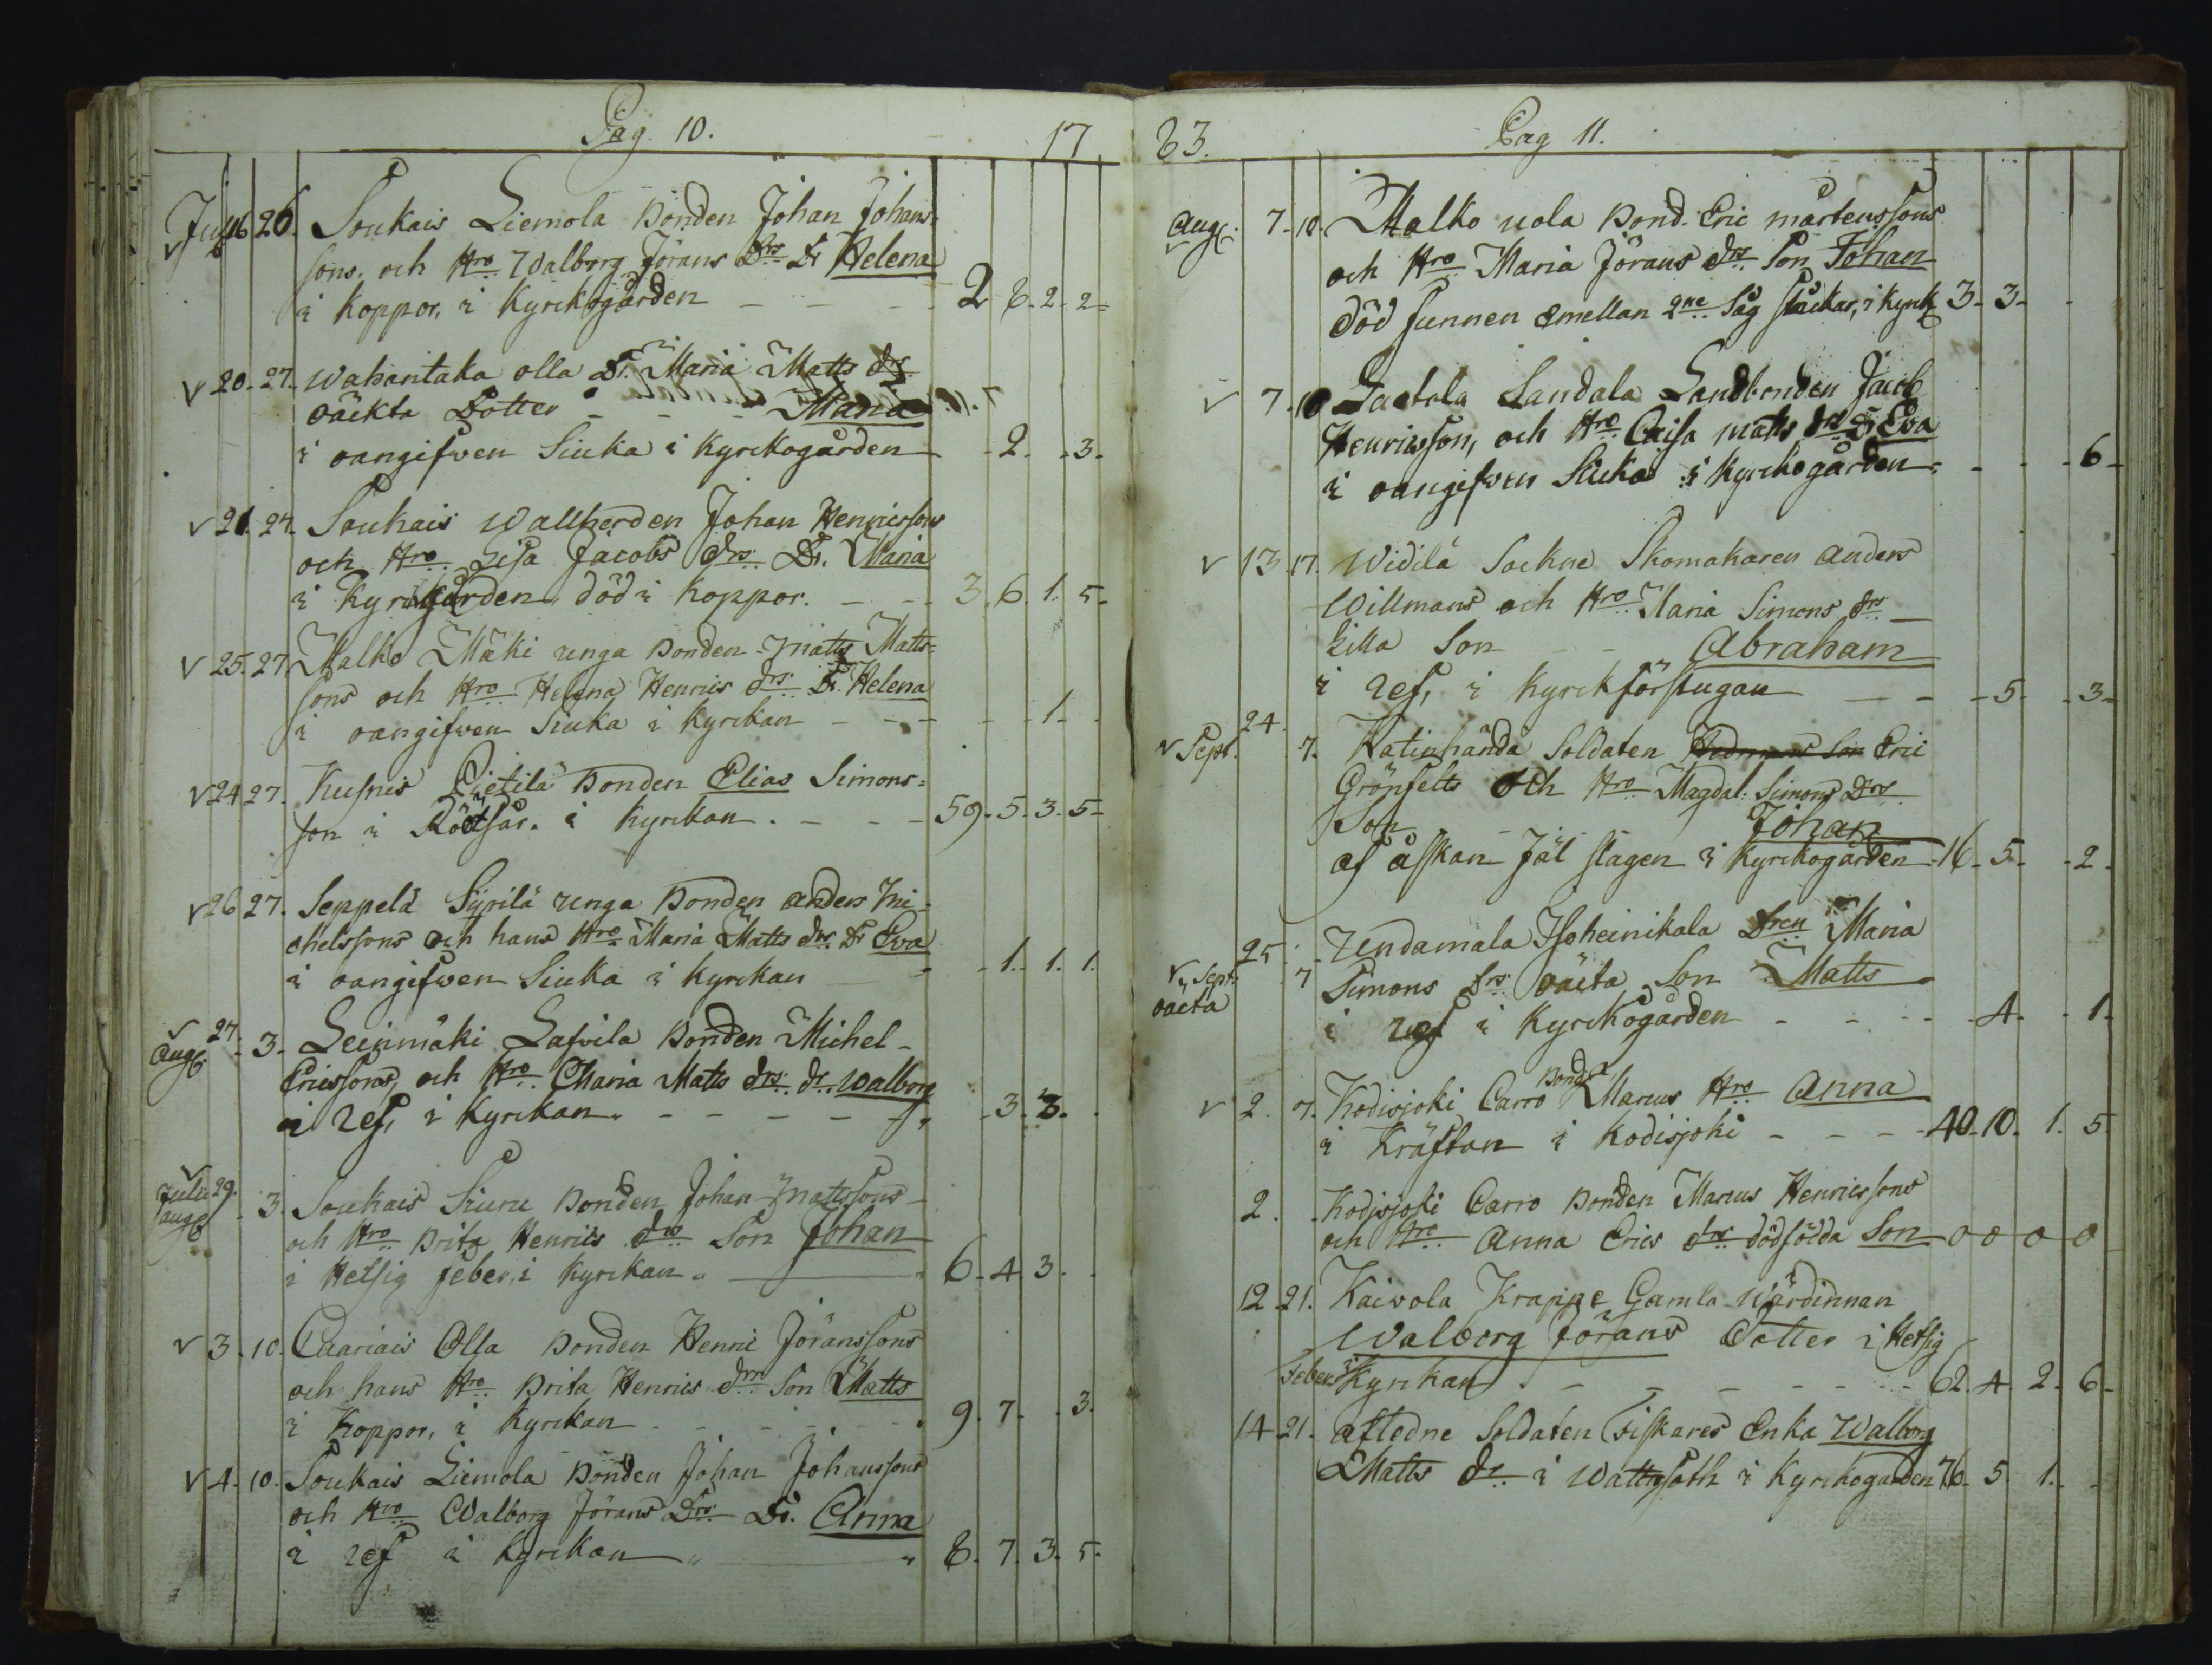 Pag. 10. 17
July 16 26. Soukais Liemola Bonden Johan Johans-
sons, och Hro Walborg Jörans Drs Dr Helena
i Koppor, i Kyrckogården - - - 2 8. 2. 2
v 20. 27. Wahantaka olla Dr. Maria Matts drs
oäckta Dotter - - - Maria
i oangifwen Siuka i Kyrckogården - 2. - 3.
v 21. 27. Soukais Wallherden Johan Henricssons
och Hro Lisa Jacobs drs Dr. Maria
i Kyrckogården, död i Koppor. - - - 3. 6. 1. 5.
v 25. 27. Malko Mäki unga Bonden Matts Matts-
sons och Hro Helena Henrics drs Dr. Helena
i oangifwen Siuka i Kyrckan - - - - - 1.
v 24 27. Kusnis Pietilä Bonden Elias Simons-
son i Rötsår. i Kyrckan. - - - 59. 5. 3. 5.
v 26 27. Seppelä Syrilä unga Bonden Anders Mi-
chelssons och hans Hro Maria Matts drs Dr Eva
i oangifwen Siuka i Kyrckan - 1. 1. 1.
v 27. Aug. 3. Leinmäki Lafvila Bonden Michel
Ericssons, och Hro Maria Matts drs dr. Walborg
i ref, i Kyrckan - - - - - 3. 3.
v Julii 29. aug. 3. Soukais Siuru Bonden Johan Mattssons
och Hro Brita Henrics drs Son Johan
i Hetsig feber, i Kyrckan " " 6. 4. 3.
v 3. 10. Caariais Olla Bonden Henric Jöranssons
och hans Hro Brita Henrics drs Son Matts
i Koppor, i Kyrckan - - - - 9. 7. - 3.
v 4. 10. Soukais Liemola Bonden Johan Johanssons
och Hro Walborg Jörans Drs Dr. Anna
i ref i Kyrckan " " 8. 7. 3. 5.
83. Pag 11.
Aug. v 7. 10. Malko uola Bond. Eric Mårtenssons
och Hro Maria Jörans drs Son Johan
död funnen emellan 2ne Såg stäckar, i Kyrk 3. 3.
v 7. 10 Sandala Landbonden Jacob
Henricsson, och Hro Caisa Matts drs Dr Eva
i oangifwen Siuka i Kyrckogården - - - 6
v 13. 17. Widilä Sockne Skomakaren Anders
Willmans och Hro Maria Simons drs
Lilla Son - - Abraham
i ref, i Kyrckförstugan - - - 5. - 3.
24.
v Sept. 7. Katinhända Soldaten Eric
Grönfelts och Hro Magdal: Simons Drs
Son - - Johan
af åskan Jäl slagen i Kyrckogården 16. 5. - 2.
25. Undamala Isoheinikala Dren Maria
v Sept. 7 Simons Drs oäcta Son Matts
oäcta i ref i Kyrckogården - - - 4. - 1.
v 2. 7. Kodisjoki Carro Bond. Marcus Hro Anna
i Kräftan i Kodisjoki - - - 40. 10. 1. 5
2. Kodisjoki Carro Bonden Marcus Henricssons
och Hro Anna Erics drs dödfödda Son 0 0 0 0
12 21. Kaivola Krappe Gamla Wärdinnan
Walborg Jörans Dotter i Hetsig
Feber i Kyrckan - - - - - 62. 4. 2. 6.
14 21. afledne Soldaten Fiskares Enka Walborg
Matts dr i Wattusoth i Kyrckogården 76. 5. 1. -